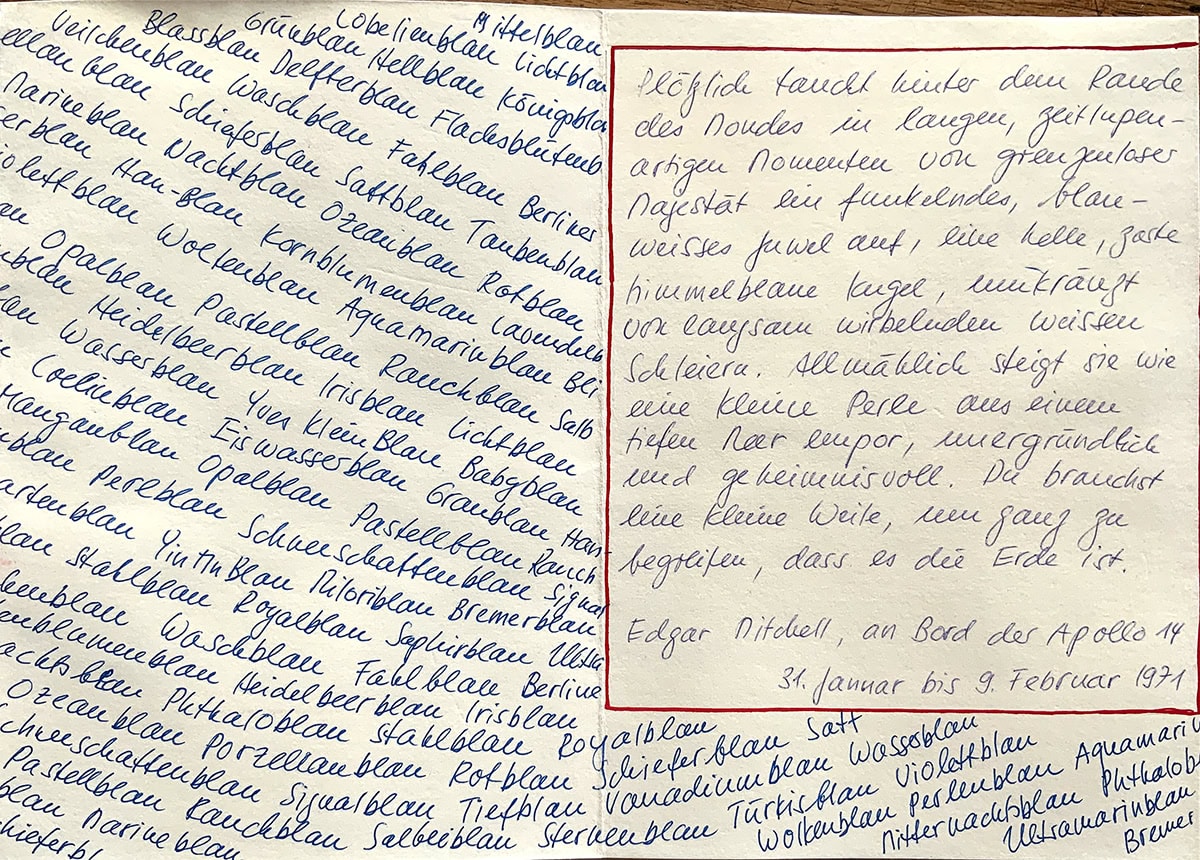 Mittelblau
Lobelienblau Lichtblau
Grünblau Hellblau Königsblau
Blassblau Delfterblau Flachsblütenb
Veilchenblau Waschblau Fahlblau Berliner
ellanblau Schieferblau Sattblau Taubenblau
Marineblau Nachtblau Ozeanblau Rotblau
serblau Han-Blau Kornblumenblau Lavendelb
iolettblau Wolkenblau Aquamarinblau Bli
au Opalblau Pastellblau Rauchblau Salb
nblau Heidelbeerblau Irisblau Lichtblau
lau Wasserblau Yves Klein Blau Babyblau
Coelinblau Eiswasserblau Graublau Han-
Manganblau Opalblau Pastellblau Rauch
nblau Perlblau Schneeschattenblau Signal
artenblau YinMnBlau Miloriblau Bremerblau
lau Stahlblau Royalblau Saphirblau Ultra
Waschblau Fahlblau Berline
blumenblau Heidelbeerblau Irisblau
achtsblau Phthaloblau Stahlblau Royalblau
Ozeanblau Porzellanblau Rotblau Schieferblau Satt
chneeschattenblau Signalblau Tiefblau Vanadiumblau Wasserblau
Pastellblau Rauchblau Salbeiblau Sternenblau Türkisblau Violettblau
blau Marineblau
hieferbl
Wolkenblau Perlenblau Aquamarin
Mitternachtsblau Phthalob
Ultramarinblau
Bremer
Plötzlich taucht hinter dem Rande
des Mondes in langen, zeitlupen-
artigen Momenten von grenzenloser
Majestät ein funkelndes, blau-
weisses Juwel auf, eine helle, zarte
himmelblaue Kugel, umkränzt
von langsam wirbelnden weissen
Schleiern. Allmählich steigt sie wie
eine kleine Perle aus einem
tiefen Meer empor, unergründlich
und geheimnisvoll. Du brauchst
eine kleine Weile, um ganz zu
begreifen, dass es die Erde ist.
Edgar Mitchell, an Bord der Apollo 14
31. Januar bis 9. Februar 1971